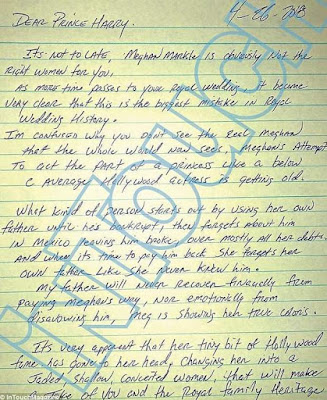 4-26-2018
Dear Prince Harry.
Its not to late, Meghan Markle is obviously not the
right women for you.
As more time passes to your Royal Wedding, it became
very clear that this is the biggest mistake in Royal
Wedding History.
I'm confused why you don't see the real Meghan
that the whole world now sees. Meghan's attempt
to act the part of a princess like a below
C average Hollywood actress is getting old.
What kind of person starts out by using her own
father until he's bankrupt, then forgets about him
in Mexico leaving him broke, over mostly all her debts.
And when it's time to pay him back she forgets her
own father like she never knew him.
My father will never recover financially from
paying Meghan's way, nor emotionally from
disavowing him. Meg is showing her true colors.
It's very apparent that her tiny bit of Hollywood
fame has gone to her head. Changing her into a
Jaded, Shallow, conceited women, that will make
of you and the Royal Family Heritage
© InTouch Magazine
InTouch